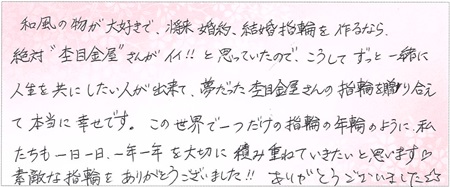 和風の物が大好きで、将来婚約、結婚指輪を作るなら、
絶対“杢目金屋”さんがイイ!!と思っていたので、こうしてずっと一緒に
人生を共にしたい人が出来て、夢だった杢目金屋さんの指輪を贈り合え
て本当に幸せです。この世界で一つだけの指輪の年輪のように、私
たちも一日一日、一年一年を大切に積み重ねていきたいと思います♡
素敵な指輪をありがとうございました!! ありがとうございました☆☆